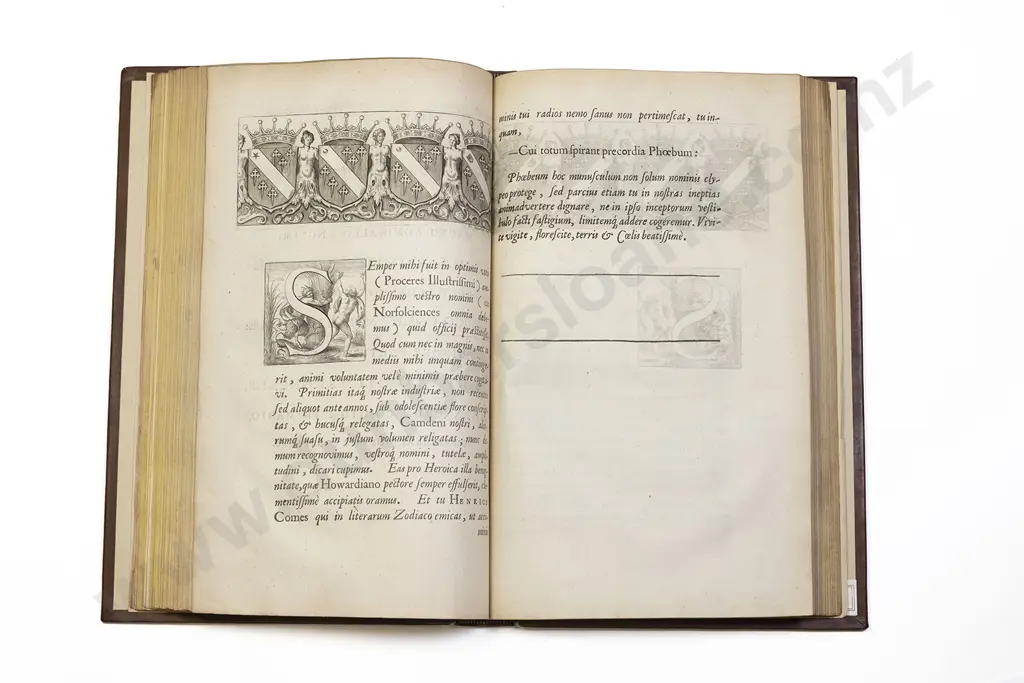 SEmper mihi fuit in optimis
( Proceres Illustrissimi )
plissimo vestro nomini (
Norfolciences omnia
mus ) quid officij
Quod cum nec in magnis, nec
mediis mihi unquam
rit, animi voluntatem velè minimis præbere
vi. Primitias itaq́ nostræ industriæ, non
sed aliquot ante annos, sub adolescentiæ flore
tas, & hucusq́ relegatas, Camdeni nostri,
rumq́ suasu, in justum volumen religatas; nunc
mum recognovimus, vestroq́ nomini, tutelæ,
tudini, dicari cupimus. Eas pro Heroica illa
nitate, quæ Howardiano pectore semper effulserit,
mentissimè accipiatis oramus. Et tu HENRICE
Comes qui in literarum Zodiaco emicas, ut
minis tui radios nemo sanus non pertimescat, tu in-
quam,
—Cui totum spirant precordia Phœbum:
Phœbeum hoc munusculum non solum nominis cly-
peo protege, sed parcius etiam tu in nostras ineptias
animadvertere dignare, ne in ipso inceptorum vesti-
bulo facti fastigium, limitemq́ addere cogeremur. Vivi-
te vigite, florescite, terris & Cœlis beatissimè.